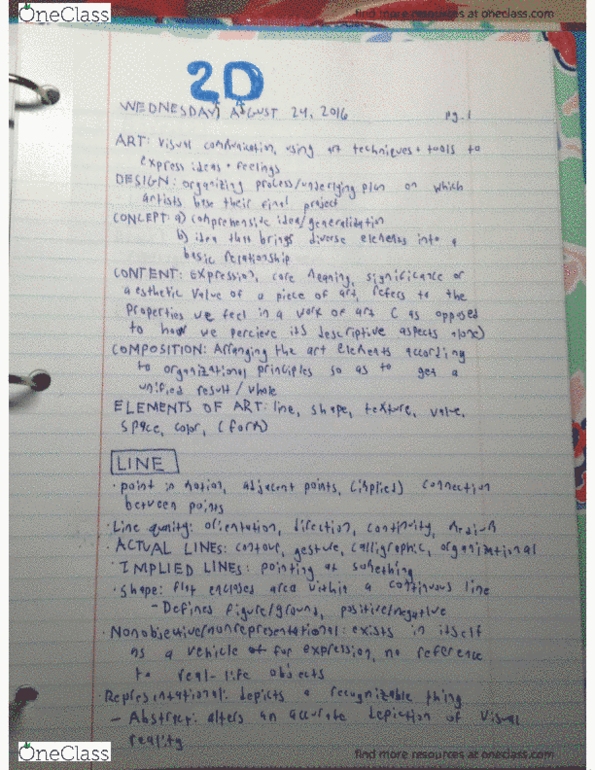 OneClass
find more resources at oneclass.com
2D
WEDNESDAY, AUGUST 24, 2016 pg. 1
ART: visual communication, using art techniques + tools to
express ideas + feelings
DESIGN: organizing process/underlying plan on which
artists base their final project
CONCEPT: a) comprehensive idea/generalization
b) idea that brings diverse elements into a
basic relationship
CONTENT: Expression, core meaning, significance or
aesthetic value of a piece of art, refers to the
properties we feel in a work of art (as opposed
to how we percieve its descriptive aspects alone)
COMPOSITION: Arranging the art elements according
to organizational principles so as to get a
unified result / whole
ELEMENTS OF ART: line, shape, texture, value,
space, color, (form)
LINE
· point in motion, adjacent points, (implied) connection
between points
· Line quality: orientation, direction, continuity, medium
· ACTUAL LINES: contour, gesture, calligraphic, organizational
· IMPLIED LINES: pointing at something
· shape: flat enclosed area within a continuous line
- Defines figure/ground, positive/negative
· Nonobjective/nonrepresentational: exists in itself
as a vehicle for expression, no reference
to real-life objects
Representational: depicts a recognizable thing
- Abstract: alters an accurate depiction of visual
reality
OneClass
find more resources at oneclass.com